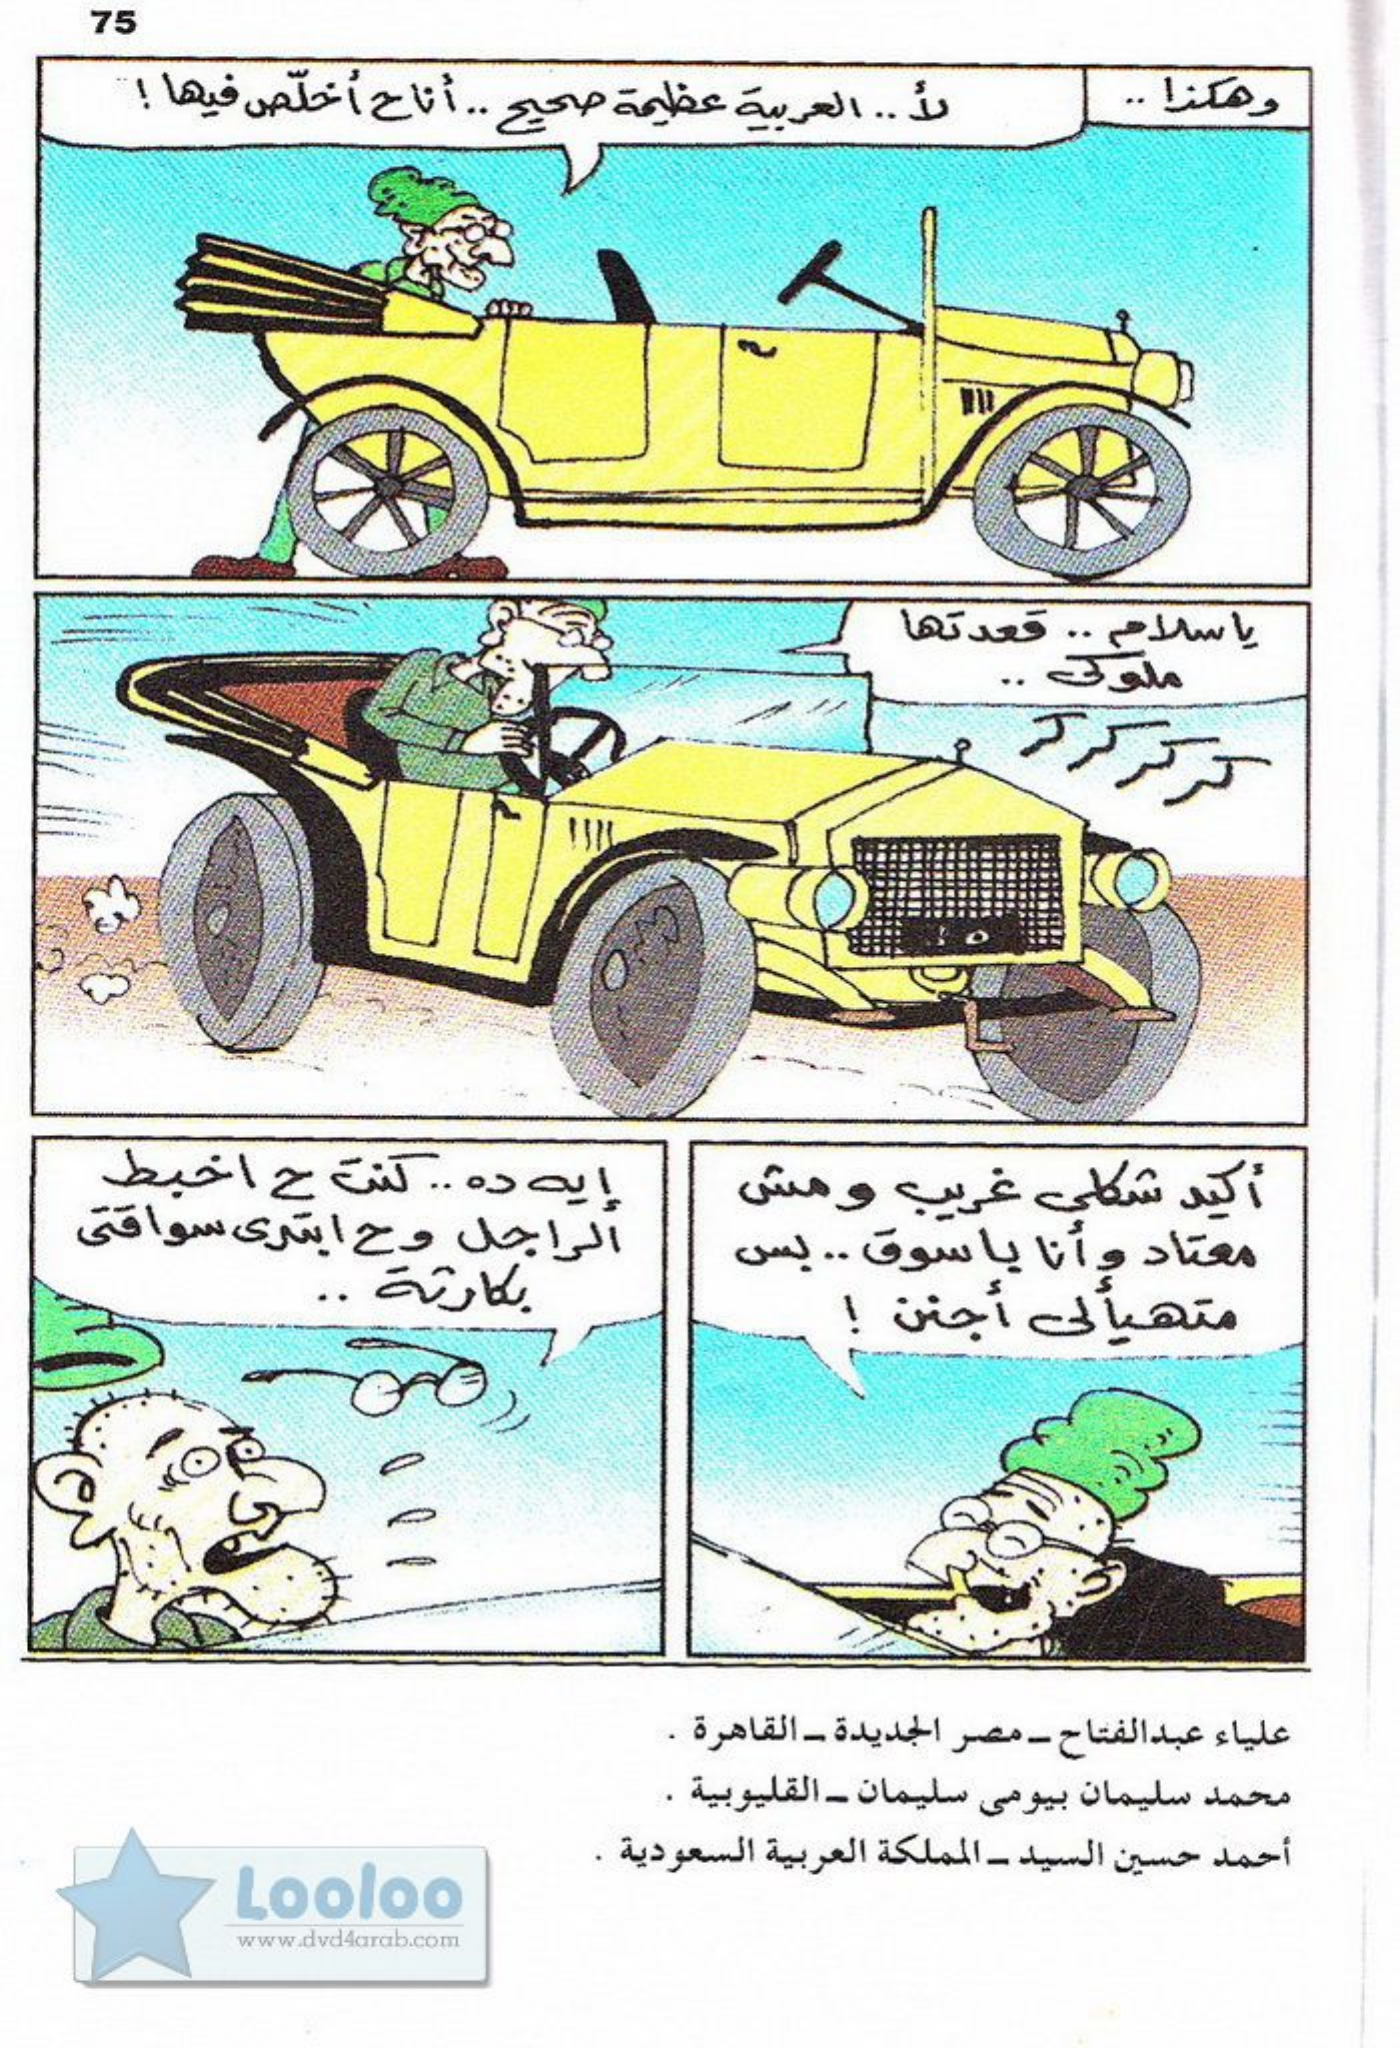 75
وهكذا ..
لأ .. العربية عظيمة صحيح .. أنا ح أخلّص فيها !
يا سلام .. قعدتها
ملوكى ..
كر كر كر كر
أكيد شكلى غريب ومش
معتاد وأنا باسوق .. بس
متهيألى أجنن !
إيه ده .. كنت ح اخبط
الراجل وح ابتدى سواقتى
بكارثة ..
علياء عبدالفتاح ـ مصر الجديدة ـ القاهرة .
محمد سليمان بيومى سليمان ـ القليوبية .
أحمد حسين السيد ـ المملكة العربية السعودية .
Looloo
www.dvd4arab.com